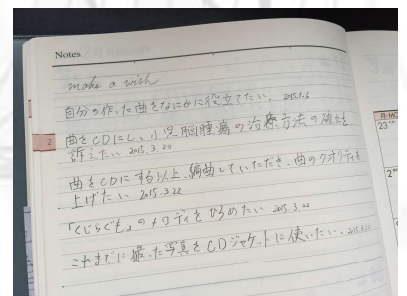 Notes
make a wish
自分の作った曲をなにかに役立てたい。 2015.3.6
曲をCDにし、小児脳腫瘍の治療方法の確立を
訴えたい 2015.3.20
曲をCDにする以上、編曲していただき、曲のクオリティを
上げたい 2015.3.22
「くじらぐも」のメロディをひろめたい 2015.3.22
これまでに撮った写真をCDジャケットに使いたい。2015.3.22
2
月・MO
23